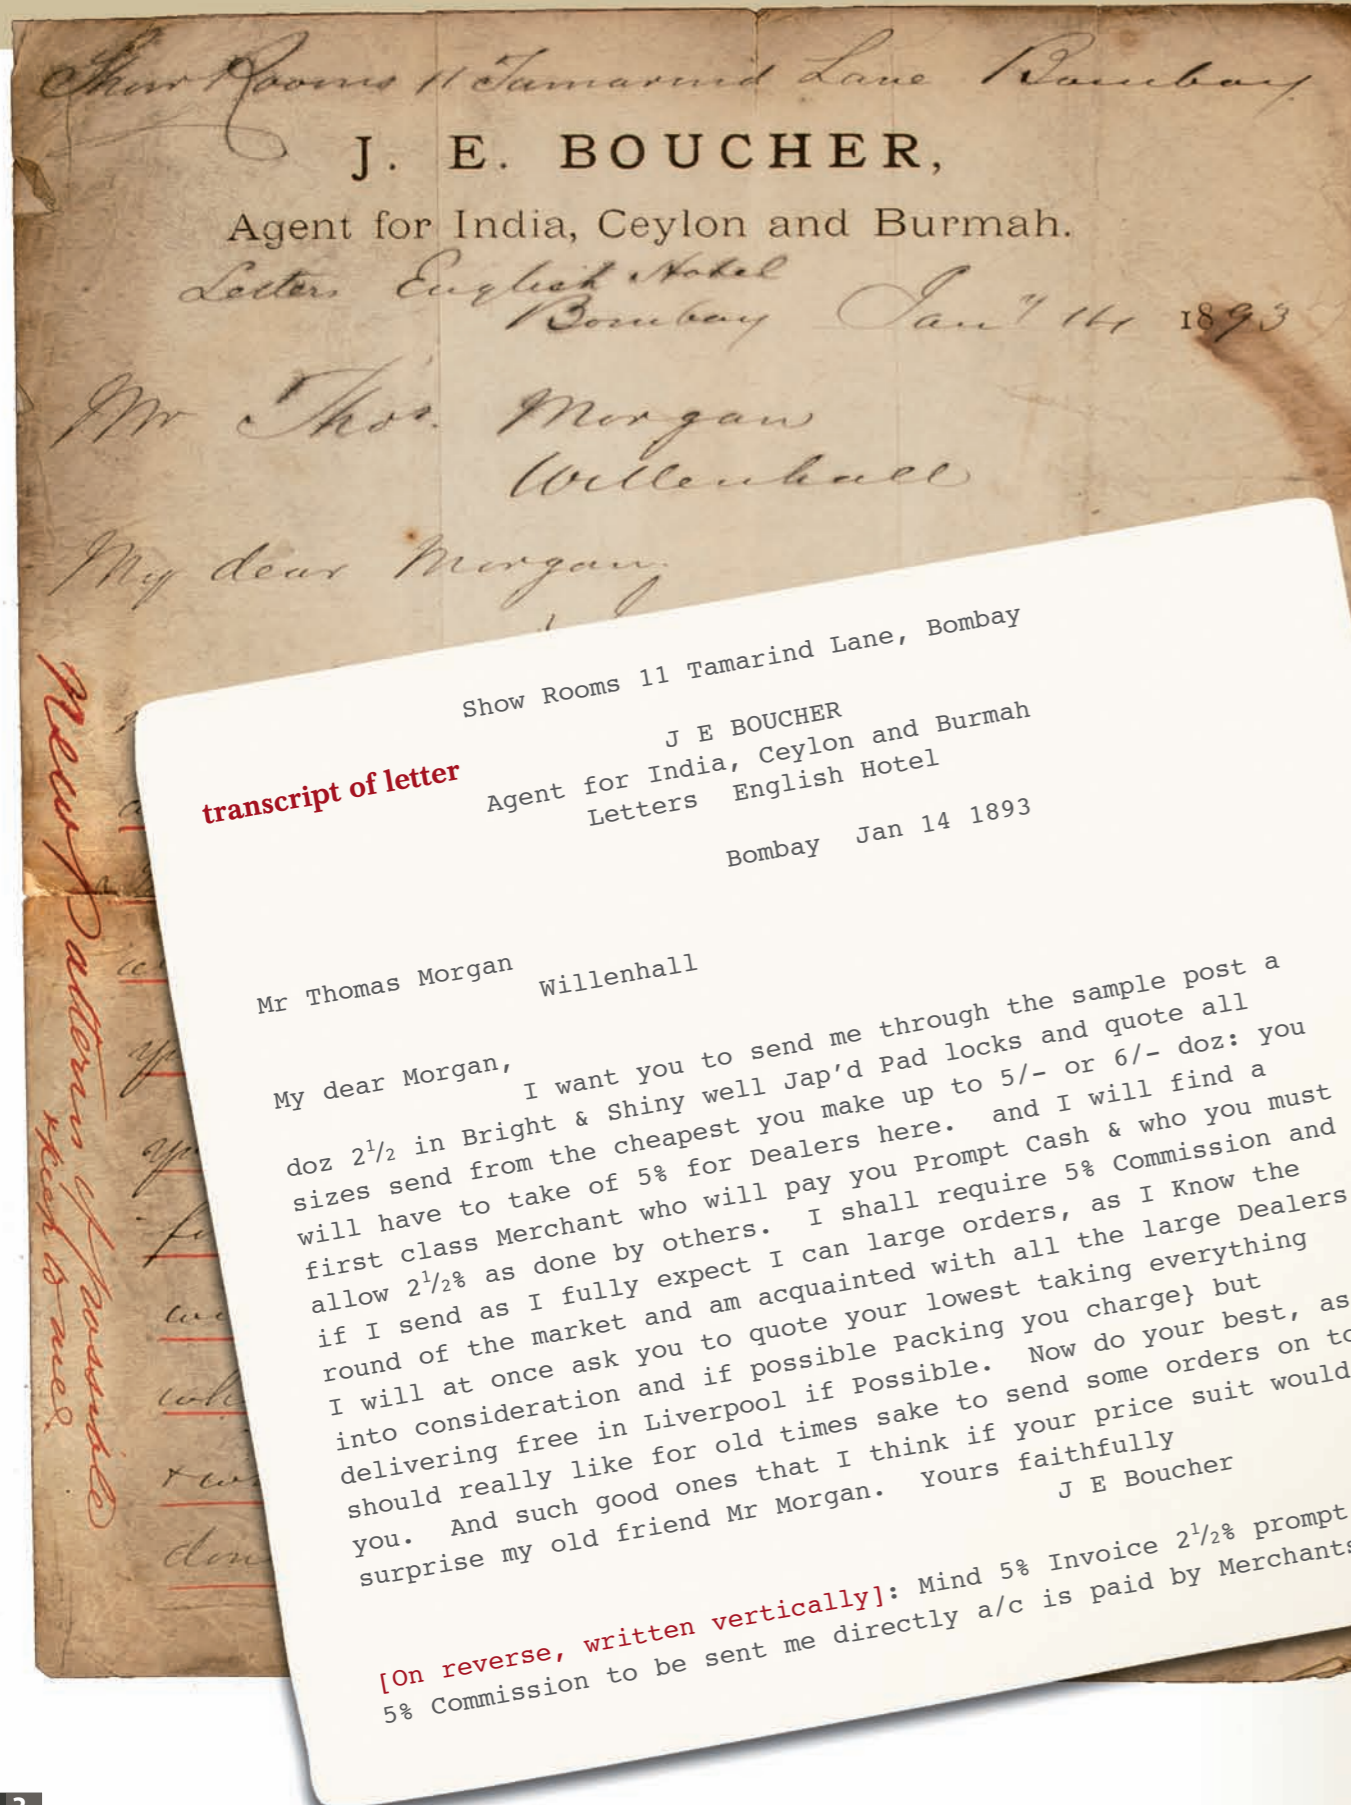 Show Rooms 11 Tamarind Lane Bombay
J. E. BOUCHER,
Agent for India, Ceylon and Burmah.
Letters English Hotel
Bombay Jany 14 1893
Mr Thos. Morgan
Willenhall
My dear Morgan
New Patterns if possible
Show Rooms 11 Tamarind Lane, Bombay
J E BOUCHER
transcript of letter
Agent for India, Ceylon and Burmah
Letters English Hotel
Bombay Jan 14 1893
Mr Thomas Morgan
Willenhall
My dear Morgan,
I want you to send me through the sample post a
doz 2½ in Bright & Shiny well Jap'd Pad locks and quote all
sizes send from the cheapest you make up to 5/- or 6/- doz: you
will have to take of 5% for Dealers here. and I will find a
first class Merchant who will pay you Prompt Cash & who you must
allow 2½% as done by others. I shall require 5% Commission and
if I send as I fully expect I can large orders, as I Know the
round of the market and am acquainted with all the large Dealers
I will at once ask you to quote your lowest taking everything
into consideration and if possible Packing you charge} but
delivering free in Liverpool if Possible. Now do your best, as
should really like for old times sake to send some orders on to
you. And such good ones that I think if your price suit would
surprise my old friend Mr Morgan. Yours faithfully
J E Boucher
[On reverse, written vertically]: Mind 5% Invoice 2½% prompt
5% Commission to be sent me directly a/c is paid by Merchants